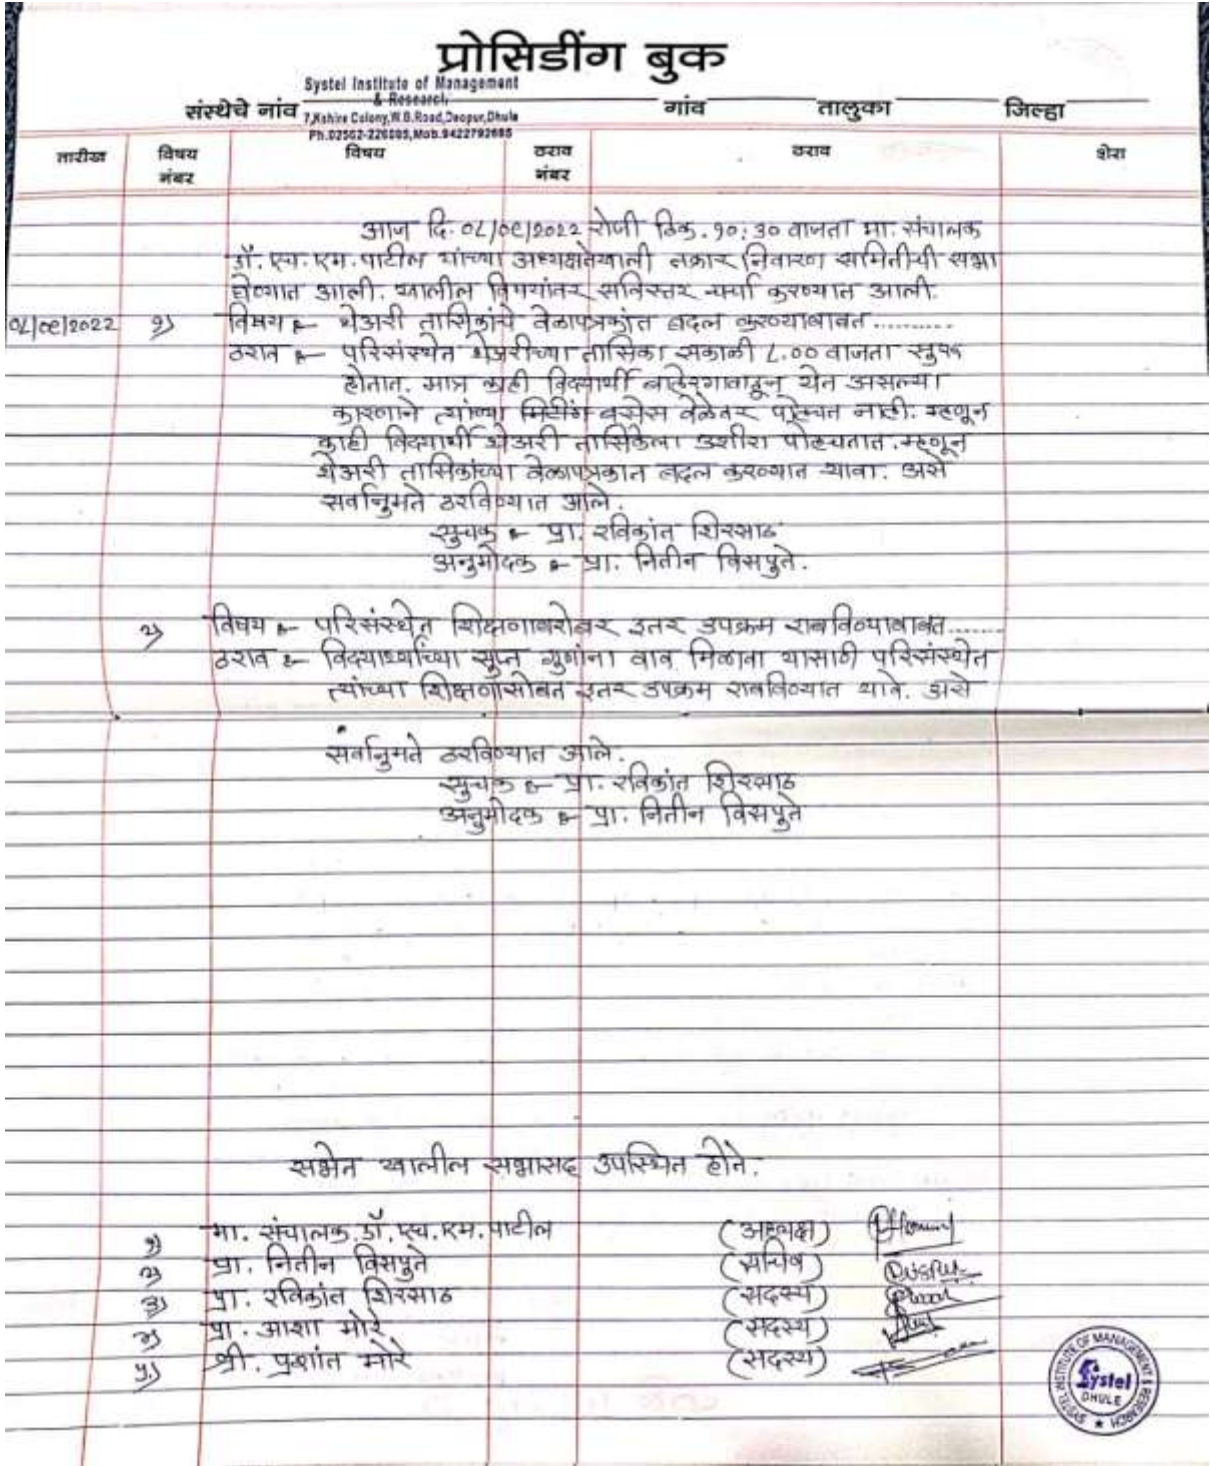 प्रोसिडींग बुक
Systel Institute of Management
& Research
संस्थेचे नांव 7,Kshire Colony,W.B.Road,Deopur,Dhule गांव तालुका जिल्हा
Ph.02562-226885,Mob.9422792685
तारीख विषय नंबर विषय ठराव नंबर ठराव शेरा
आज दि. ०८/०९/2022 रोजी ठिक. १०:३० वाजता मा. संचालक
डॉ. एच. एम. पाटील यांच्या अध्यक्षतेखाली तक्रार निवारण समितीची सभा
घेण्यात आली. खालील विषयांवर सविस्तर चर्चा करण्यात आली.
०८/०९/2022 १) विषय :- थेअरी तासिकांचे वेळापत्रकांत बदल करण्याबाबत..........
ठराव :- परिसंस्थेत थेअरीच्या तासिका सकाळी ८.०० वाजता सुरू
होतात. मात्र काही विद्यार्थी बाहेरगावाहून येत असल्या
कारणाने त्यांच्या बसेस वेळेवर पोहचत नाही. म्हणून
काही विद्यार्थी थेअरी तासिकेला उशीरा पोहचतात. म्हणून
थेअरी तासिकांच्या वेळापत्रकात बदल करण्यात यावा. असे
सर्वानुमते ठरविण्यात आले.
सुचक :- प्रा. रविकांत शिरसाठ
अनुमोदक :- प्रा. नितीन विसपुते.
२) विषय :- परिसंस्थेत शिक्षणाबरोबर इतर उपक्रम राबविण्याबाबत.......
ठराव :- विद्यार्थ्यांच्या सुप्त गुणांना वाव मिळावा यासाठी परिसंस्थेत
त्यांच्या शिक्षणासोबत इतर उपक्रम राबविण्यात यावे. असे
सर्वानुमते ठरविण्यात आले.
सुचक :- प्रा. रविकांत शिरसाठ
अनुमोदक :- प्रा. नितीन विसपुते
सभेत खालील सभासद उपस्थित होते.
१) मा. संचालक. डॉ. एच. एम. पाटील (अध्यक्ष)
२) प्रा. नितीन विसपुते (सचिव)
३) प्रा. रविकांत शिरसाठ (सदस्य)
४) प्रा. आशा मोरे (सदस्य)
५) श्री. प्रशांत मोरे (सदस्य)
SYSTEL INSTITUTE OF MANAGEMENT & RESEARCH
Systel
DHULE